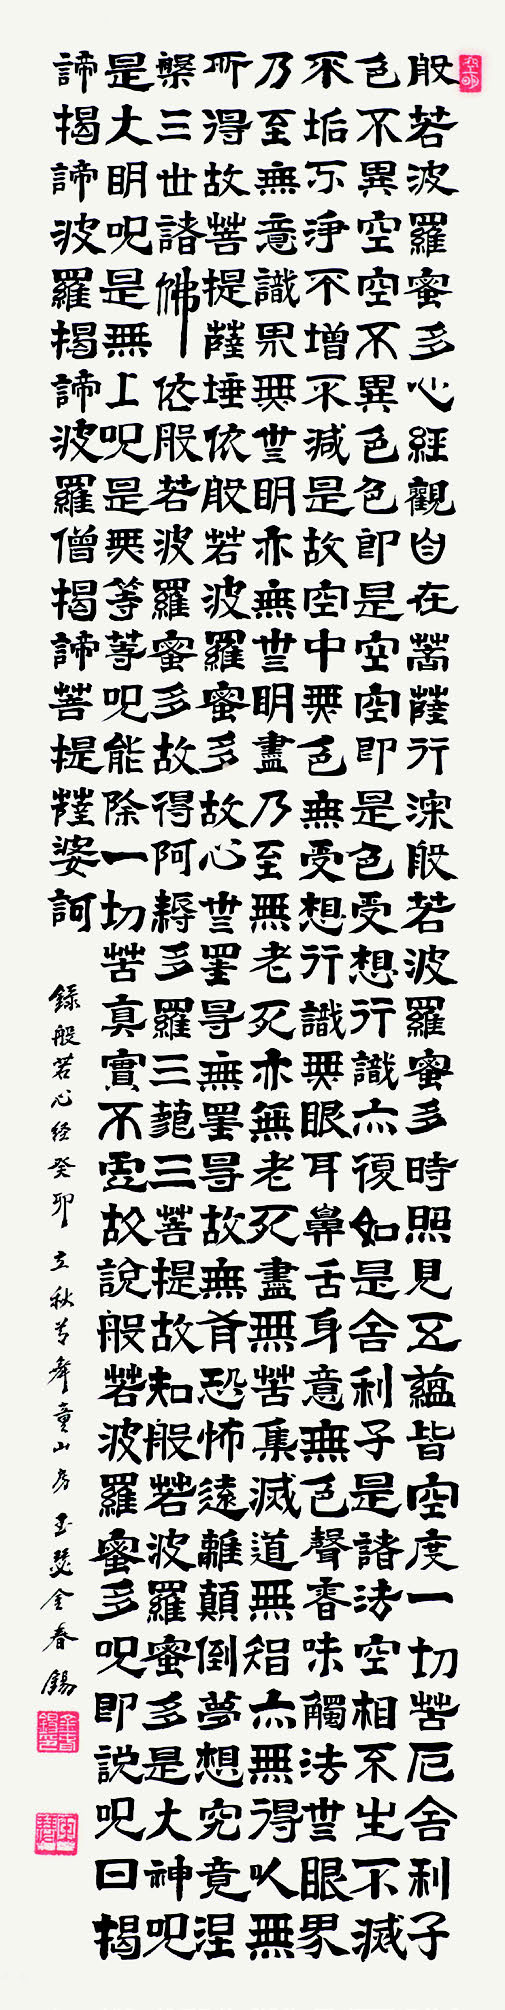 般若波羅蜜多心經觀自在菩薩行深般若波羅蜜多時照見五蘊皆空度一切苦厄舍利子
色不異空空不異色色即是空空即是色受想行識亦復如是舍利子是諸法空相不生不滅
不垢不淨不增不減是故空中無色無受想行識無眼耳鼻舌身意無色聲香味觸法無眼界
乃至無意識界無無明亦無無明盡乃至無老死亦無老死盡無苦集滅道無智亦無得以無
所得故菩提薩埵依般若波羅蜜多故心無罣礙無罣礙故無有恐怖遠離顛倒夢想究竟涅
槃三世諸佛依般若波羅蜜多故得阿耨多羅三藐三菩提故知般若波羅蜜多是大神呪
是大明呪是無上呪是無等等呪能除一切苦真實不虛故說般若波羅蜜多呪即説呪曰揭
諦揭諦波羅揭諦波羅僧揭諦菩提薩婆訶
録般若心经癸卯立秋童山房金春錫